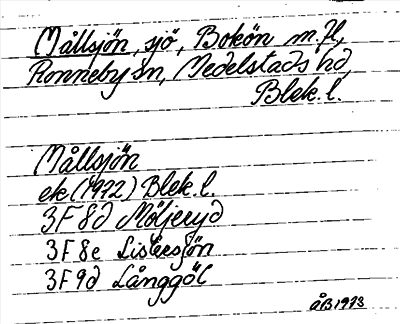 Mållsjön, sjö, Bokön m.fl,
Ronneby sn, Medelstads hd,
Blek.l.
Mållsjön
ek (1972) Blek l.
3F 8d Möljeryd
3F 8e Listersjön
3F 9d Långgöl
ÅB 1973